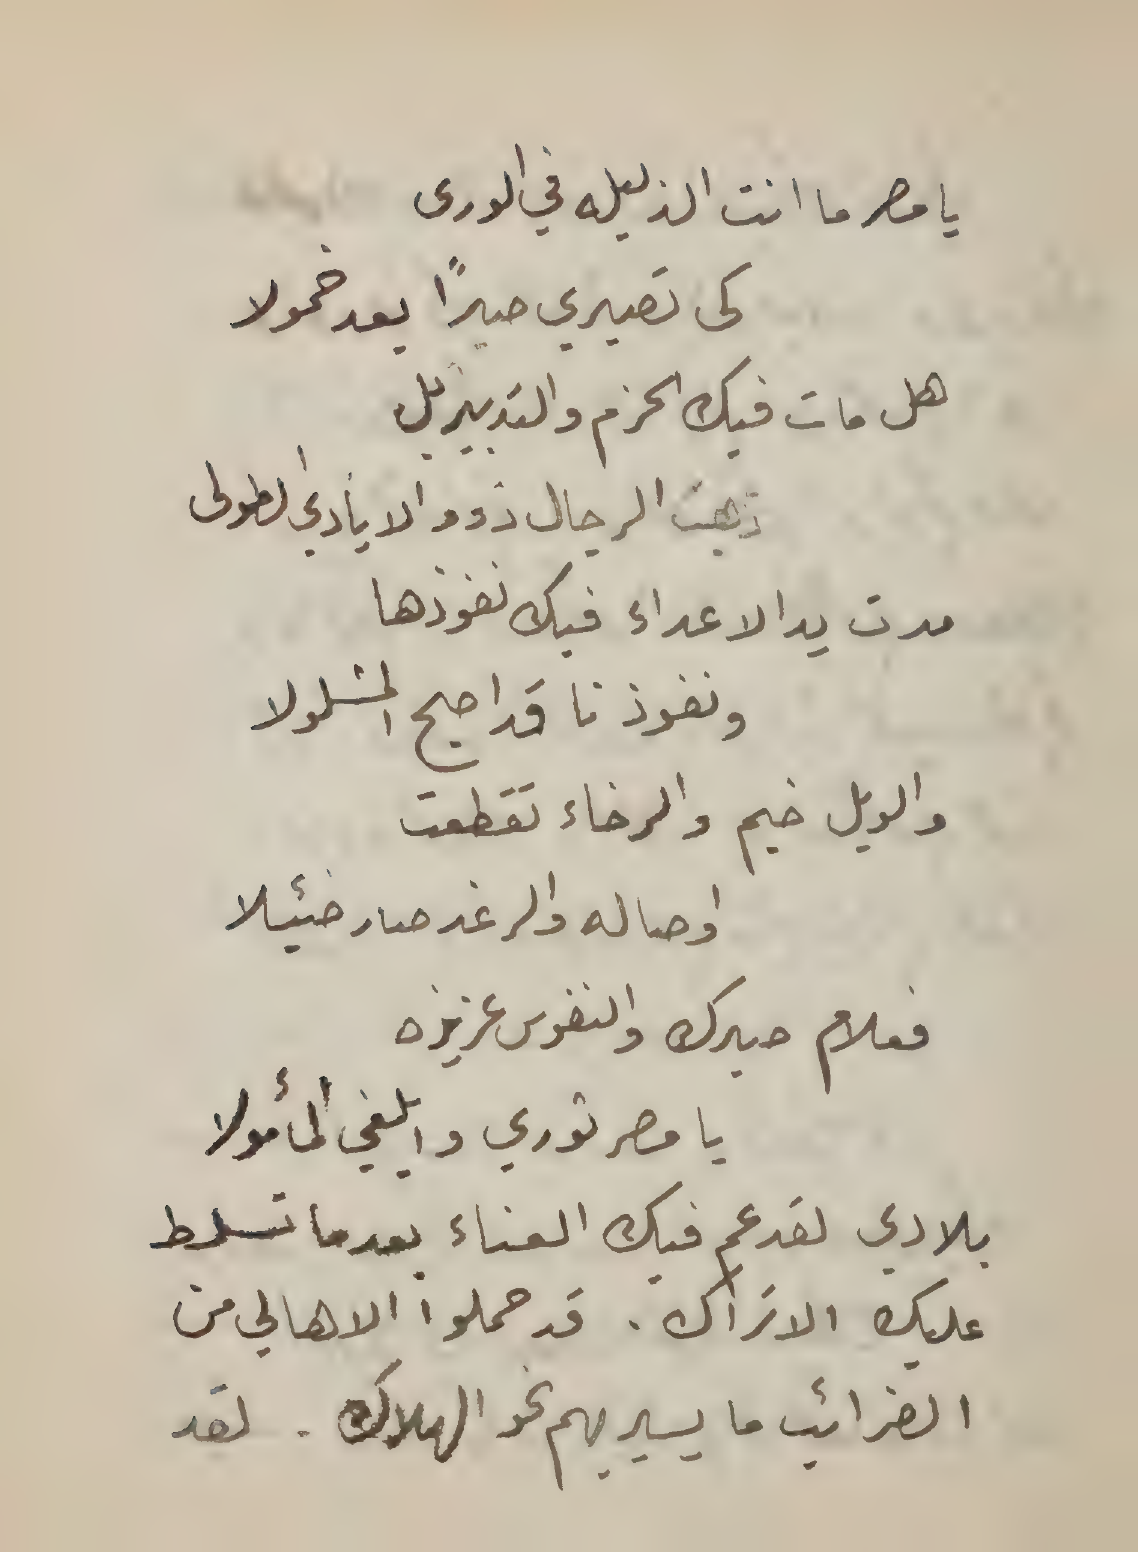 يا مصر ما انت الذليله في الورى
كى تصيري صبرًا بعد خمولا
هل مات فيك الحزم والتدبير بل
ذهبت الرجال ذوو الايادي الطولى
مدت يد الاعداء فيك نفوذها
ونفوذنا قد اصبح المشلولا
والويل خيم والرخاء تقطعت
اوصاله والرغد صار ضئيلا
فعلام صبرك والنفوس عزيزه
يا مصر ثوري وابلغي المأمولا
بلادي لقد عم فيك العناء بعدما تسلط
عليك الاتراك . قد حملوا الاهالي من
الضرائب ما يسير بهم نحو الهلاك . لقد